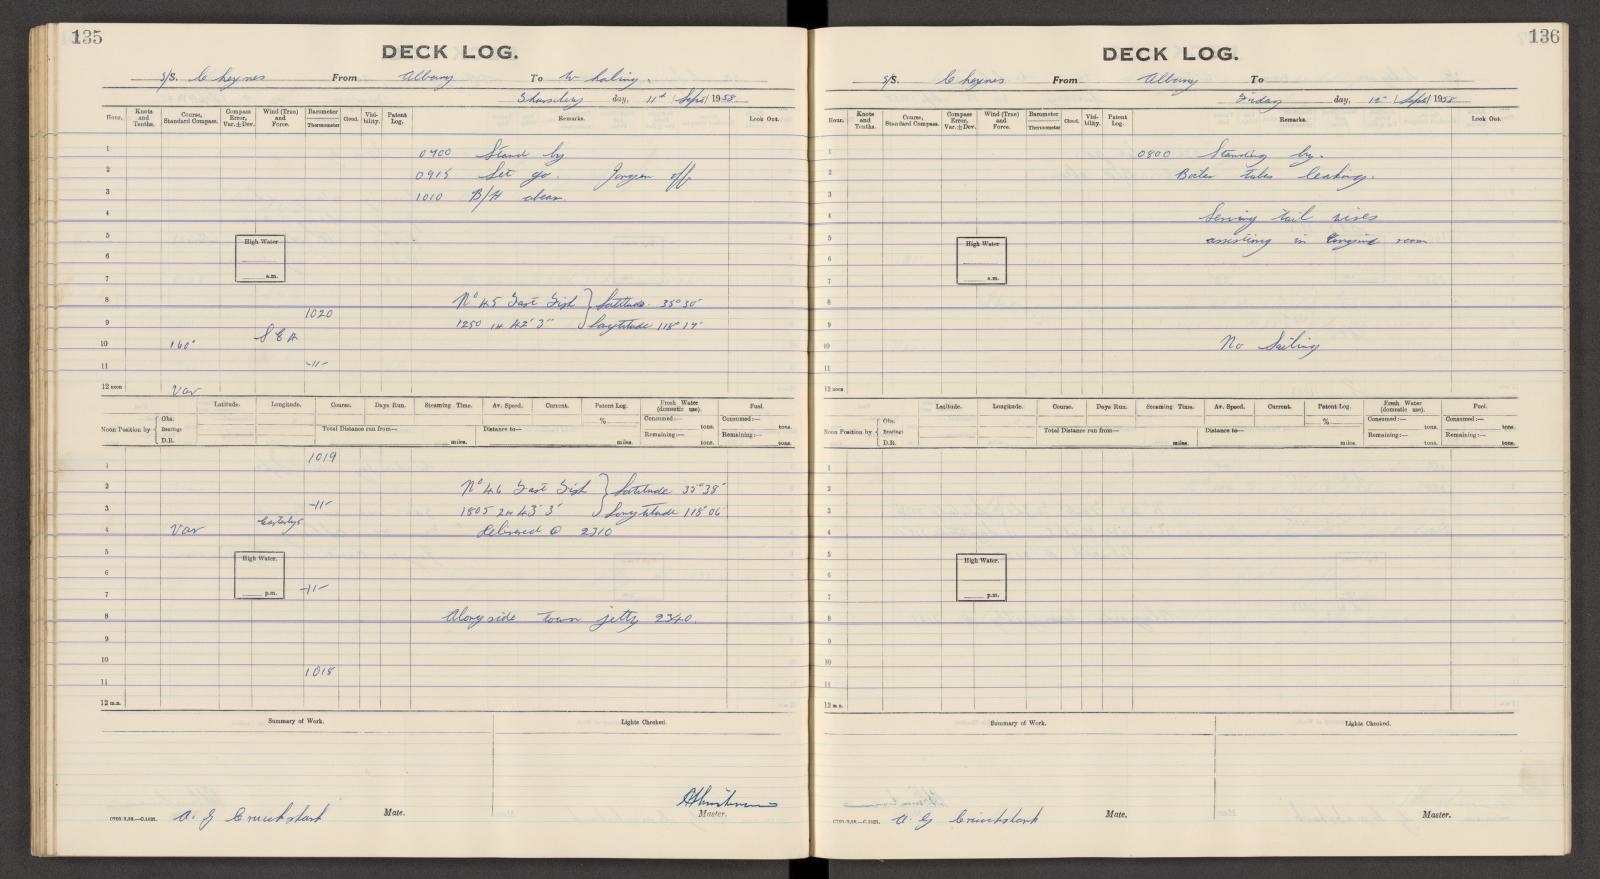 135
DECK LOG.
S/S. Cheynes From Albany To Whaling.
Thursday day, 11th Sept 1958
Hour. Knots and Tenths. Course, Standard Compass. Compass Error, Var.±Dev. Wind (True) and Force. Barometer Thermometer Cloud. Visibility. Patent Log. Remarks. Look Out.
1
0700 Stand by
2
0915 Let go. off
3
1010 B/H clear.
4
5
High Water
6
a.m.
7
8
No 45 Fast Fish } Latitude 35° 30'
1020
9
1250 1H 42' 3" Longtitude 118° 17'
10
160°
11
-11-
12 noon Var
Latitude. Longitude. Course. Days Run. Steaming Time. Av. Speed. Current. Patent Log. Fresh Water (domestic use). Fuel.
Noon Position by { Obs. Bearings D.R.
% Consumed:— tons. Consumed:— tons.
Total Distance run from— miles. Distance to— miles. Remaining:— tons. Remaining:— tons.
1
1019
2
No 46 Fast Fish } Latitude 35° 38'
3
-11-
1805 2H 43' 3' Longtitude 118° 06'
4
Var Easterly
Delivered @ 2310
5
High Water.
6
p.m.
7
-11-
8
Alongside town jetty 2340.
9
10
1018
11
12 m.n.
Summary of Work. Lights Checked.
A. G Cruickshank Mate. Master.
136
DECK LOG.
S/S. Cheynes From Albany To
Friday day, 12th Sept 1958
Hour. Knots and Tenths. Course, Standard Compass. Compass Error, Var.±Dev. Wind (True) and Force. Barometer Thermometer Cloud. Visibility. Patent Log. Remarks. Look Out.
1
0800 Standing by.
2
Boiler tubes leaking.
3
4
Serving tail wires
5
High Water
assisting in Engine room
6
a.m.
7
8
9
10
No Sailing
11
12 noon
Latitude. Longitude. Course. Days Run. Steaming Time. Av. Speed. Current. Patent Log. Fresh Water (domestic use). Fuel.
Noon Position by { Obs. Bearings D.R.
% Consumed:— tons. Consumed:— tons.
Total Distance run from— miles. Distance to— miles. Remaining:— tons. Remaining:— tons.
1
2
3
4
5
High Water.
6
p.m.
7
8
9
10
11
12 m.n.
Summary of Work. Lights Checked.
A. G Cruickshank Mate. Master.